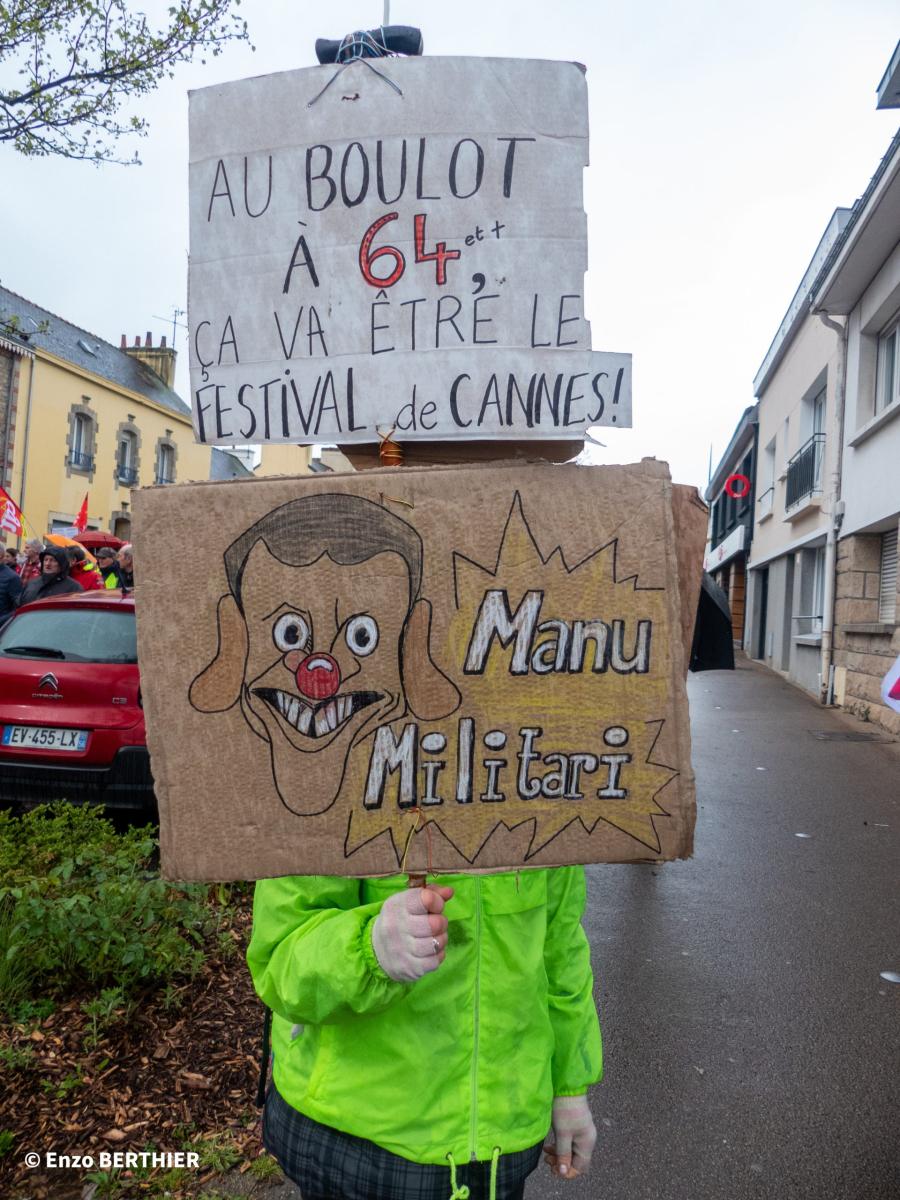 AU BOULOT
À 64 et +,
ÇA VA ÊTRE LE
FESTiVAL de CANNES!
Manu
Militari
CITROËN
C3
EV-455-LX
© Enzo BERTHIER